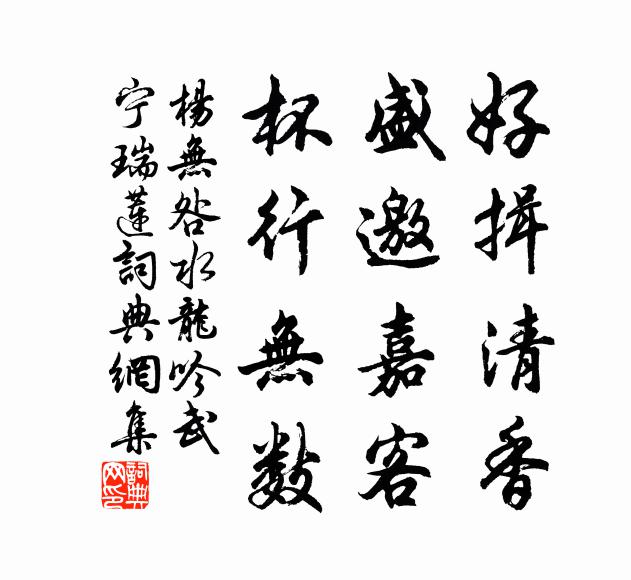 好揖清香
盛邀嘉客
杯行無數
楊無咎水龍吟武
宁瑞蓮詞典網集
詞典网印